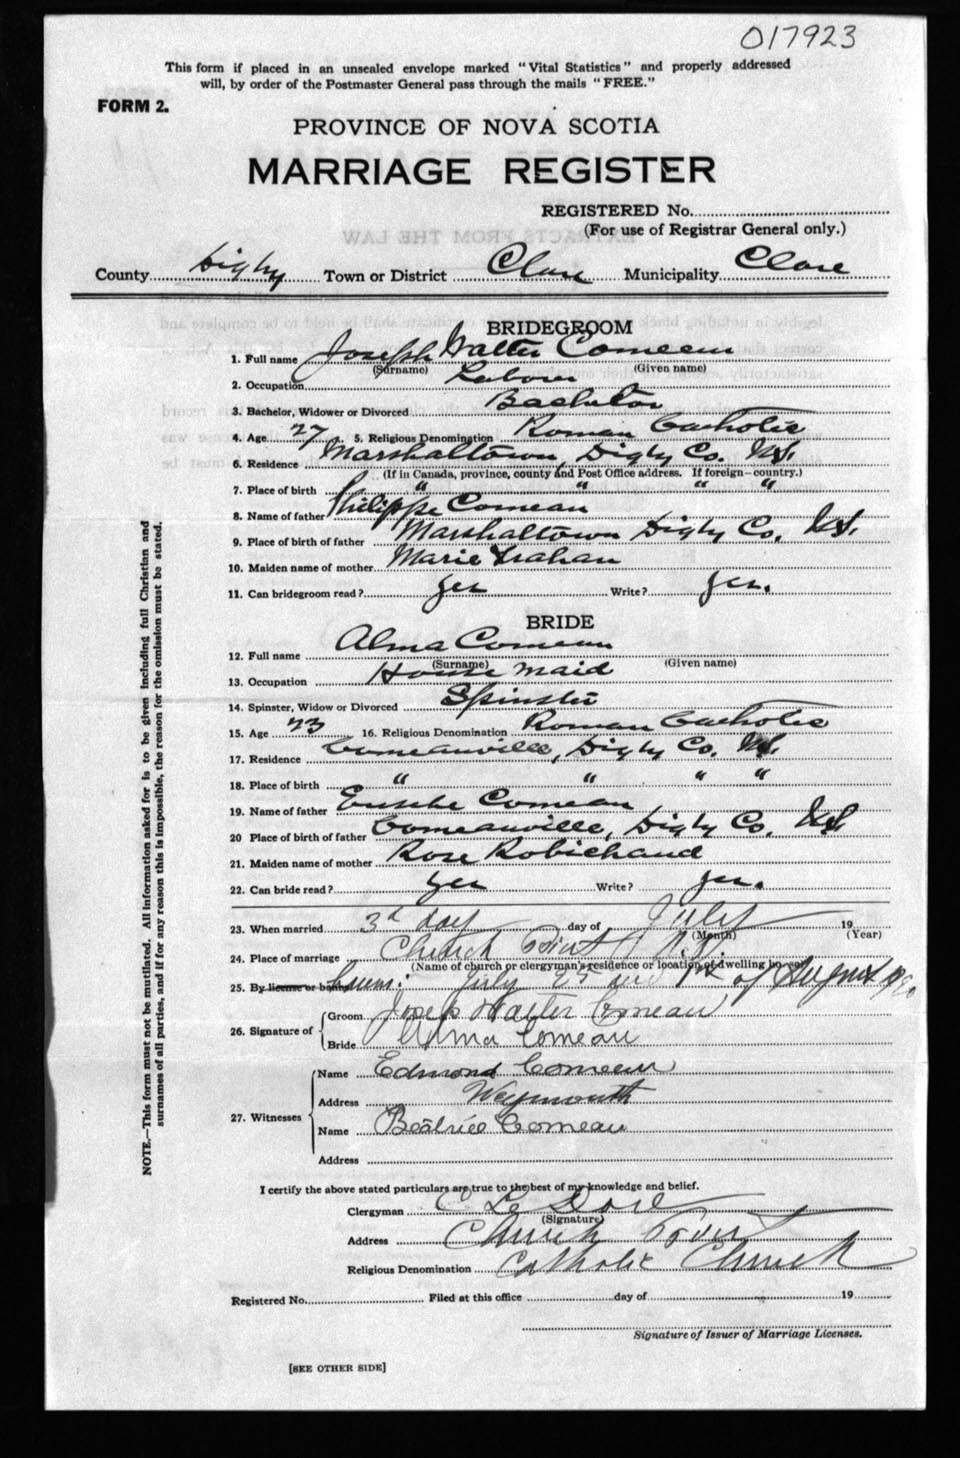 017923
This form if placed in an unsealed envelope marked "Vital Statistics" and properly addressed
will, by order of the Postmaster General pass through the mails "FREE."
FORM 2.
PROVINCE OF NOVA SCOTIA
MARRIAGE REGISTER
REGISTERED No.
(For use of Registrar General only.)
EXTRACTS FROM THE LAW
County Digby Town or District Clare Municipality Clare
BRIDEGROOM
1. Full name Joseph Walter Comeau
(Surname) (Given name)
2. Occupation Laborer
3. Bachelor, Widower or Divorced Bachelor
4. Age 27 5. Religious Denomination Roman Catholic
6. Residence Marshaltown, Digby Co. N.S.
(If in Canada, province, county and Post Office address. If foreign—country.)
7. Place of birth " " " "
8. Name of father Philippe Comeau
9. Place of birth of father Marshaltown Digby Co. N.S.
10. Maiden name of mother Marie Trahan
11. Can bridegroom read? Yes Write? Yes.
BRIDE
12. Full name Alma Comeau
(Surname) (Given name)
13. Occupation House maid
14. Spinster, Widow or Divorced Spinster
15. Age 23 16. Religious Denomination Roman Catholic
17. Residence Comeauville, Digby Co. N.S.
18. Place of birth " " " "
19. Name of father Eusebe Comeau
20 Place of birth of father Comeauville, Digby Co. N.S.
21. Maiden name of mother Rose Robichaud
22. Can bride read? Yes Write? Yes.
23. When married 3d day day of July 19
(Month) (Year)
24. Place of marriage Church Point N.S.
(Name of church or clergyman's residence or location of dwelling house)
25. By license or banns Banns: July 25 and 1st of August
26. Signature of
Groom Joseph Walter Comeau
Bride Alma Comeau
27. Witnesses
Name Edmond Comeau
Address Weymouth
Name Béatrice Comeau
Address
I certify the above stated particulars are true to the best of my knowledge and belief.
Clergyman C. Le Doré
(Signature)
Address Church Point
Religious Denomination Catholic Church
Registered No. Filed at this office day of 19
Signature of Issuer of Marriage Licenses.
[SEE OTHER SIDE]
NOTE.—This form must not be mutilated. All information asked for is to be given including full Christian and
surnames of all parties, and if for any reason this is impossible, the reason for the omission must be stated.